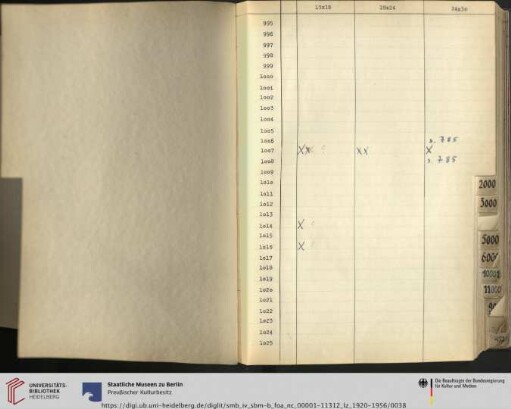 13x18 18x24 24x30
995
996
997
998
999
1000
1001
1002
1003
1004
1005
1006 s. 785
1007 XX XX X
1008 s. 785
1009
1010
1011
1012
1013
1014 X
1015
1016 X
1017
1018
1019
1020
1021
1022
1023
1024
1025
2000
3000
5000
6000
10000
11000
UNIVERSITÄTS-
BIBLIOTHEK
HEIDELBERG
Staatliche Museen zu Berlin
Preußischer Kulturbesitz
Die Beauftragte der Bundesregierung
für Kultur und Medien
https://digi.ub.uni-heidelberg.de/diglit/smb_iv_sbm-b_foa_nc_00001-11312_lz_1920-1956/0038